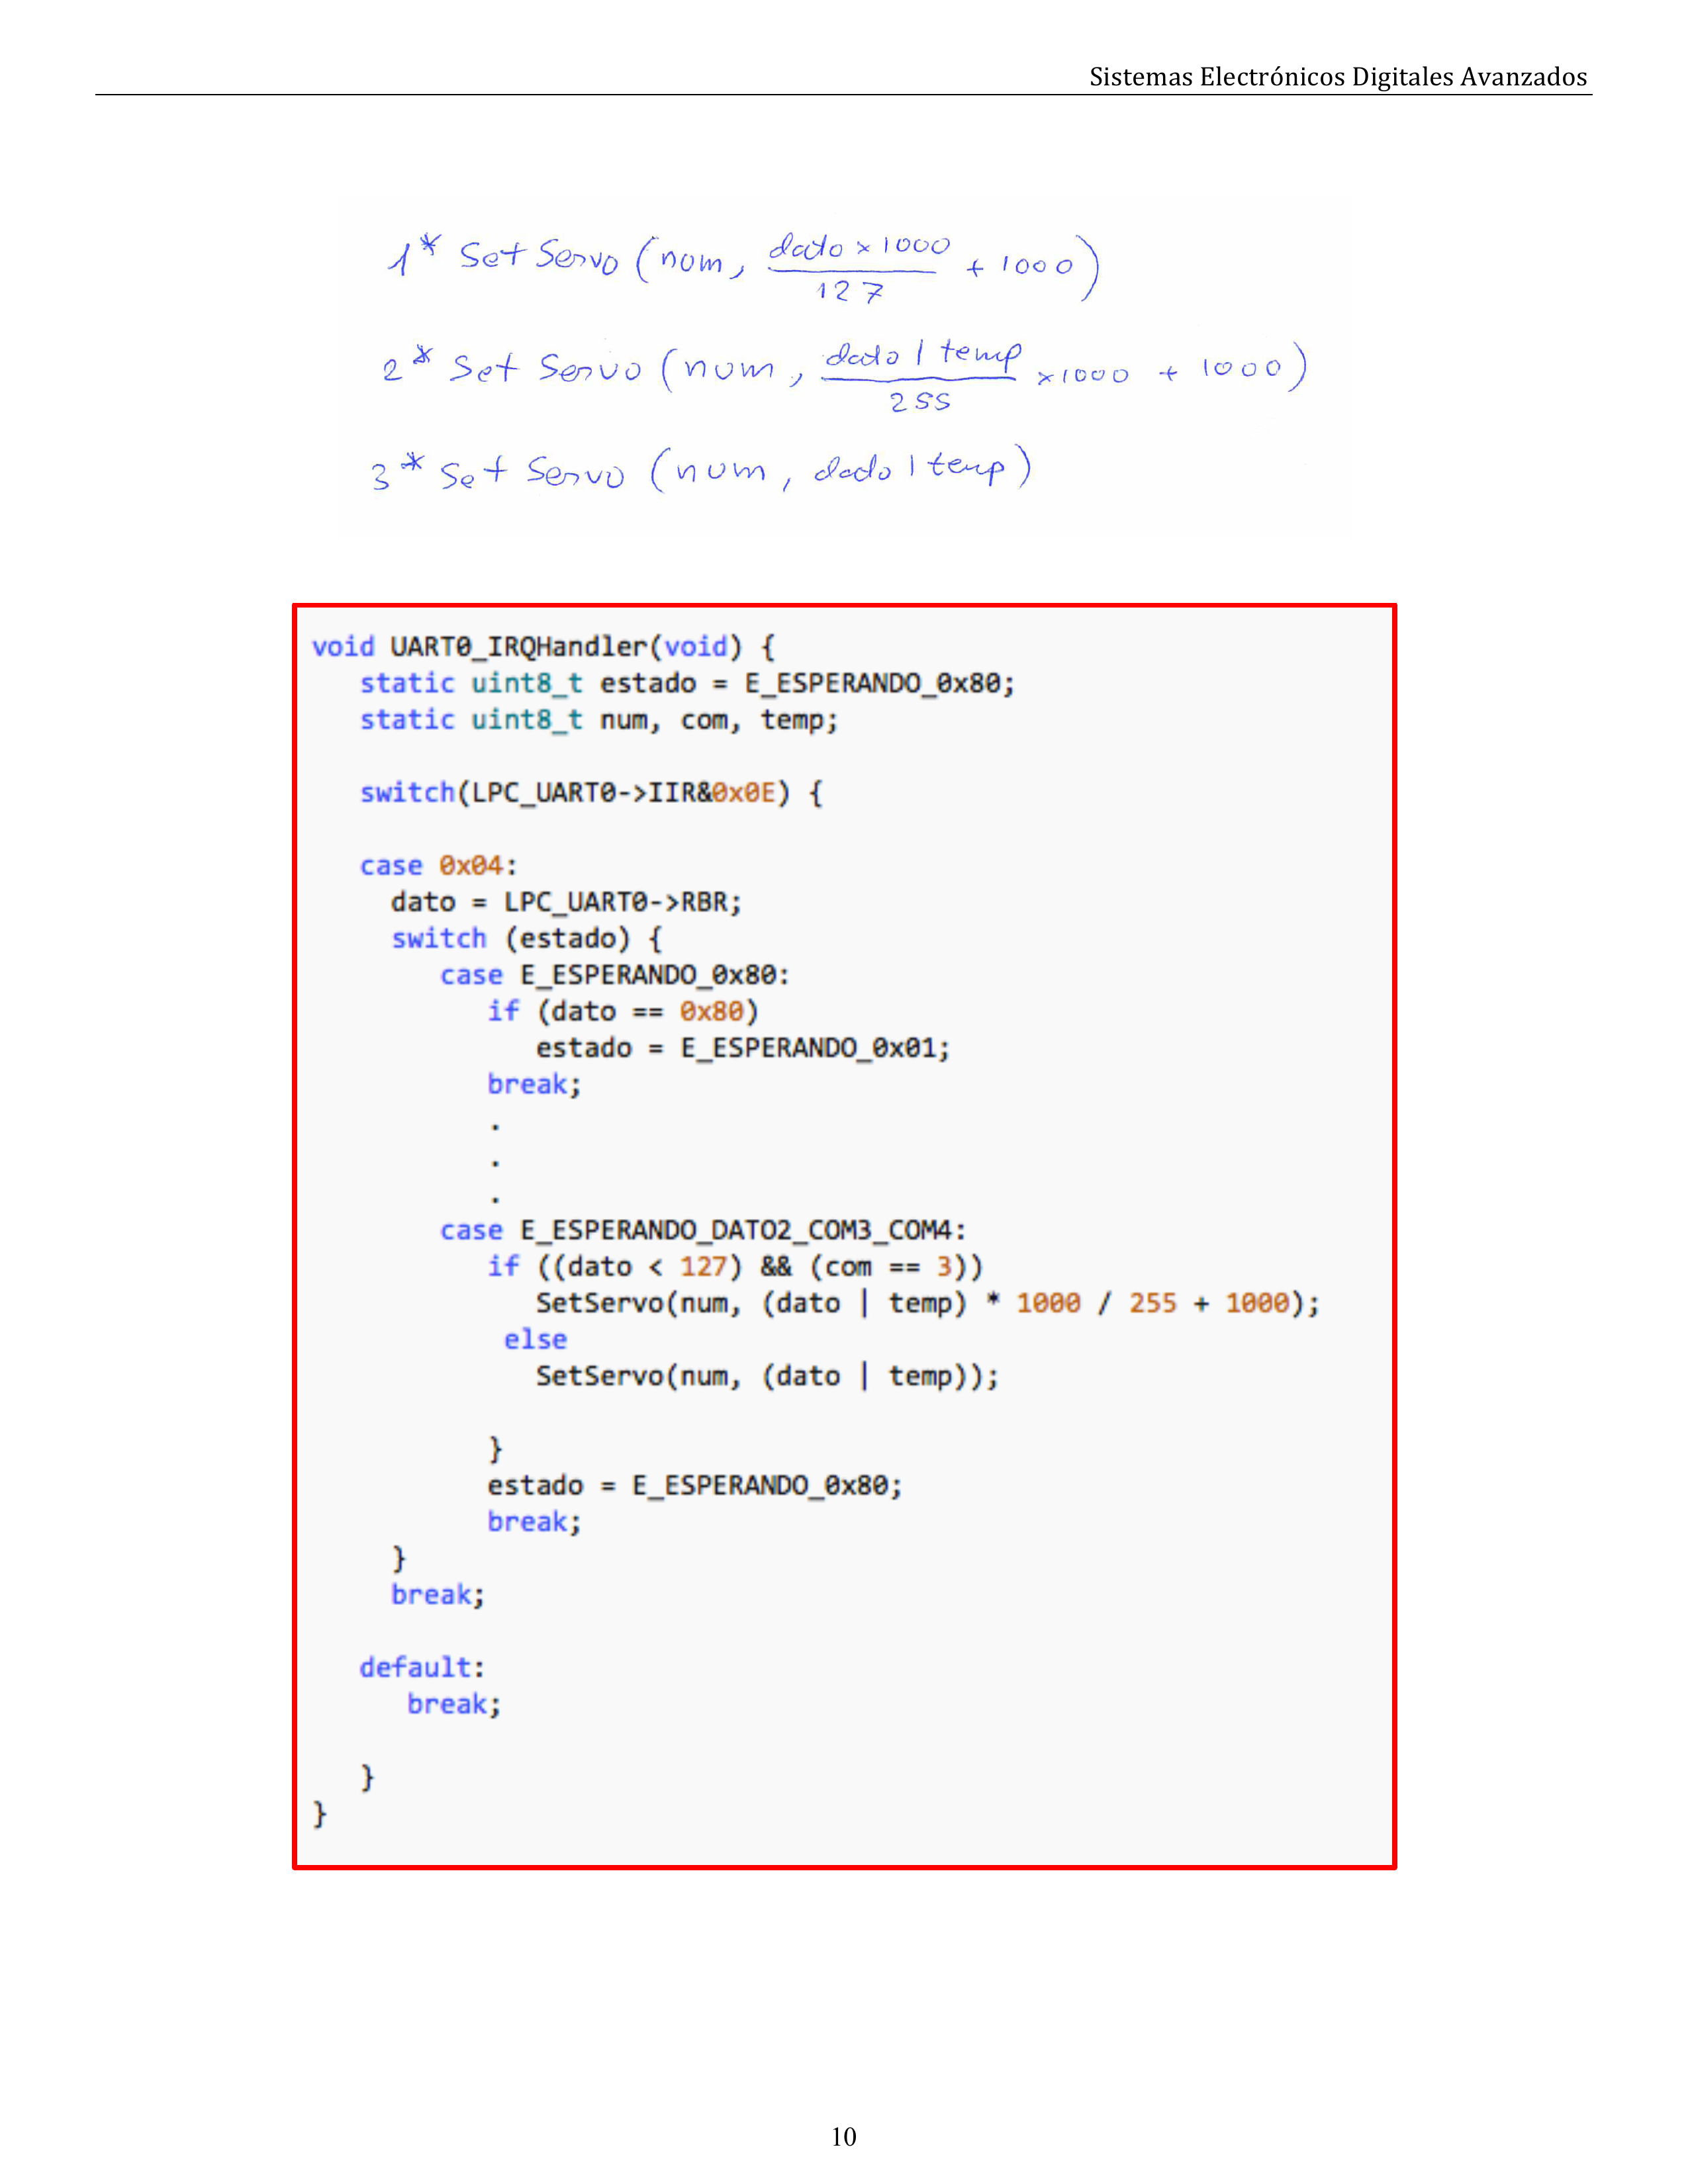 Sistemas Electrónicos Digitales Avanzados
1* Set Servo (num, dato × 1000 / 127 + 1000)
2* Set Servo (num, dato | temp / 255 × 1000 + 1000)
3* Set Servo (num, dado | temp)
void UART0_IRQHandler(void) {
static uint8_t estado = E_ESPERANDO_0x80;
static uint8_t num, com, temp;
switch(LPC_UART0->IIR&0x0E) {
case 0x04:
dato = LPC_UART0->RBR;
switch (estado) {
case E_ESPERANDO_0x80:
if (dato == 0x80)
estado = E_ESPERANDO_0x01;
break;
.
.
.
case E_ESPERANDO_DATO2_COM3_COM4:
if ((dato < 127) && (com == 3))
SetServo(num, (dato | temp) * 1000 / 255 + 1000);
else
SetServo(num, (dato | temp));
}
estado = E_ESPERANDO_0x80;
break;
}
break;
default:
break;
}
}
10